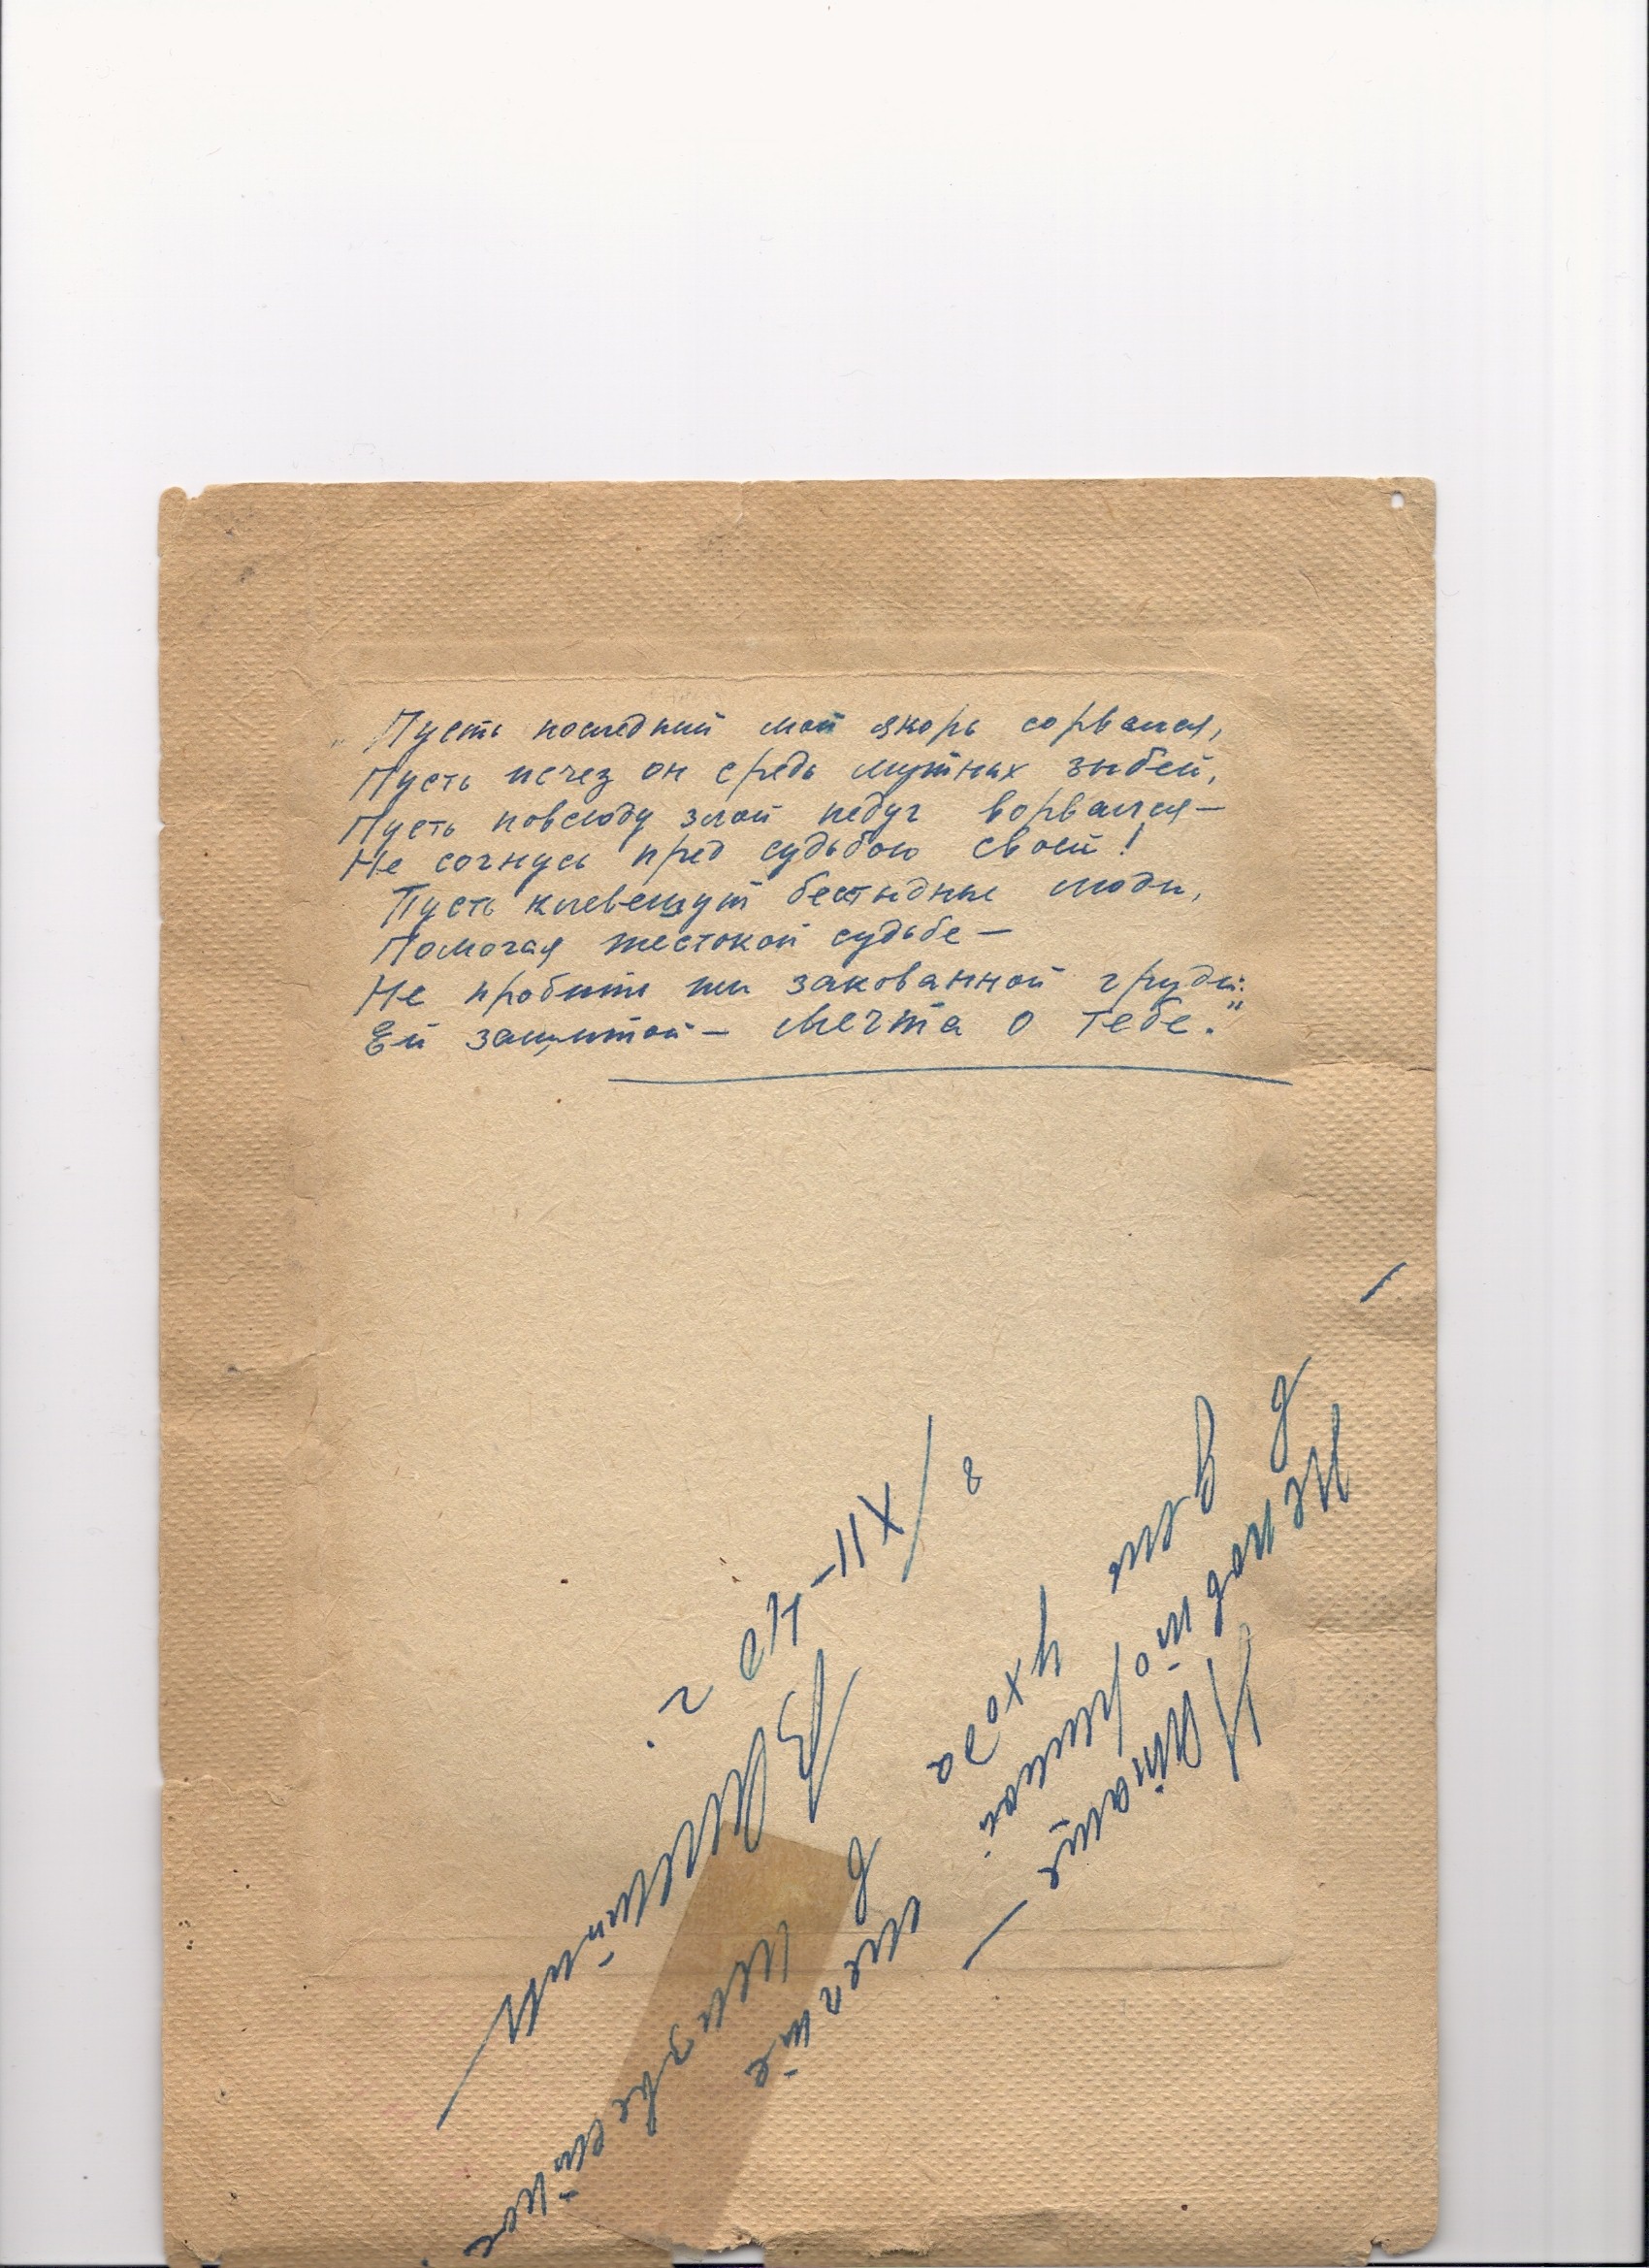 „Пусть последний мой якорь сорвался,
Пусть исчез он средь мутных зыбей,
Пусть повсюду злой недуг ворвался —
Не согнусь пред судьбою своей!
Пусть клевещут бесстыдные люди,
Помогая жестокой судьбе —
Не пробить им закованной груди:
Ей защитой — Мечта о тебе."
Наташе —
Неповторимой мечте
в дни ухода в неизвестное.
8/XII-42 г.